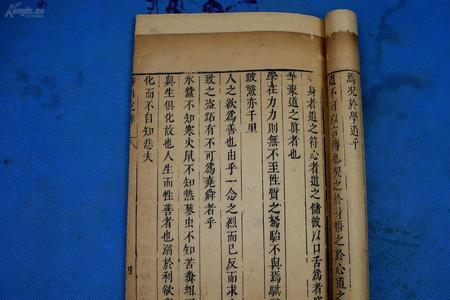 Kongfz.cn
焉况於學道乎
道不可以言傳也契之於身悟之於心道之
身者道之符心者道之儲彼以口舌為者
華棄道之眞者也
學在力力則無不至性質之駑駘不與焉騏
跛鱉亦千里
人之欲爲善也由乎一念之烈而已反而求
致之盗跖有不可爲堯舜者乎
氷蠶不知寒火鼠不知熱蓼虫不知苦
與生俱化故也人生而性善者也溺於利欲
化而不自知悲夫
四